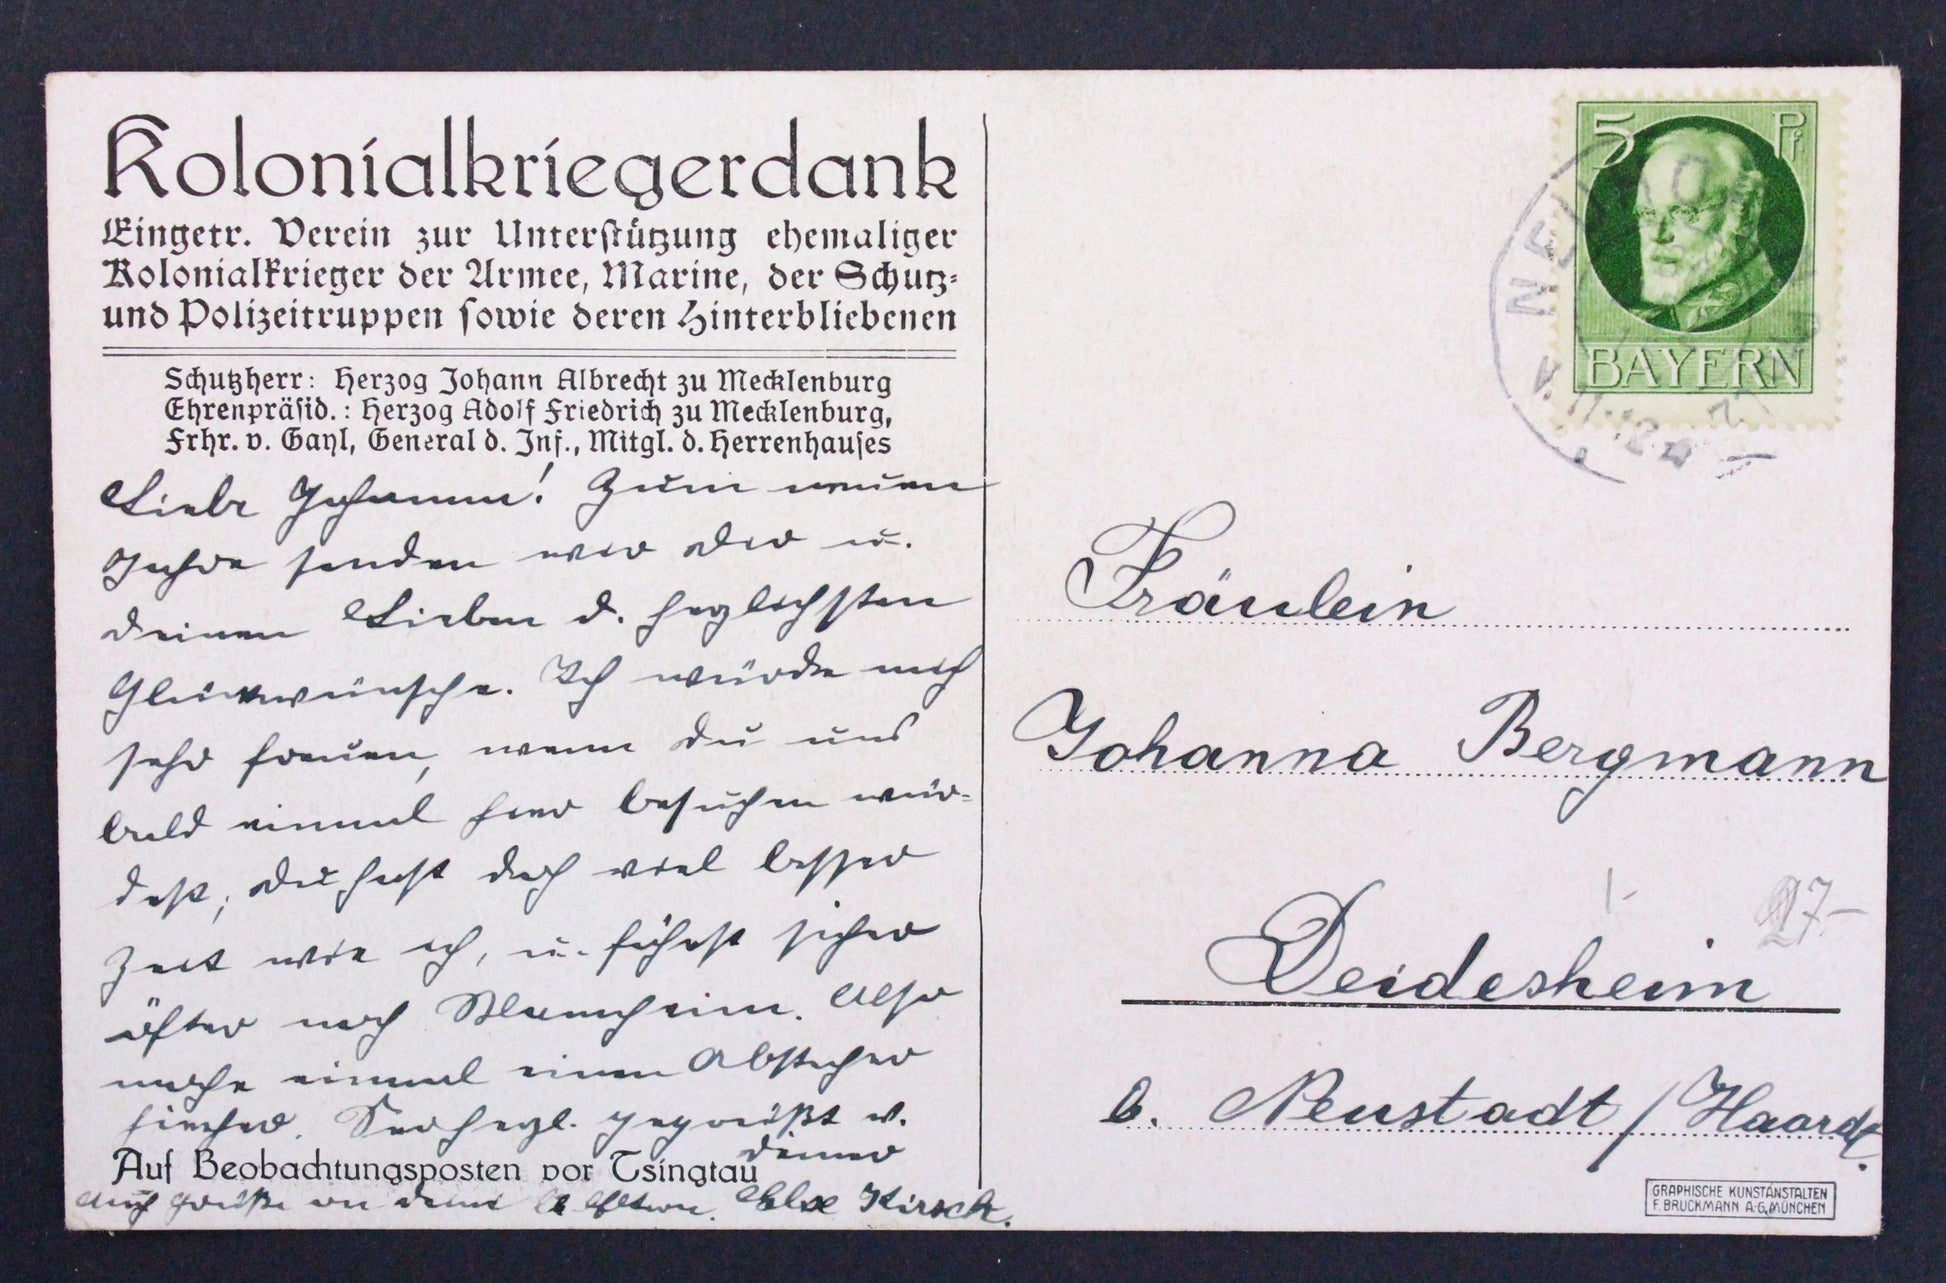 Kolonialkriegerdank
Eingetr. Verein zur Unterstützung ehemaliger
Kolonialkrieger der Armee, Marine, der Schutz=
und Polizeitruppen sowie deren Hinterbliebenen
Schutzherr: Herzog Johann Albrecht zu Mecklenburg
Ehrenpräsid.: Herzog Adolf Friedrich zu Mecklenburg,
Frhr. v. Gayl, General d. Inf., Mitgl. d. Herrenhauses
Liebe Johanna! Zum neuen
Jahre senden wir Dir u.
deinen Lieben d. herzlichsten
Glückwünsche. Ich würde mich
sehr freuen, wenn Du uns
bald einmal hier besuchen wür-
dest, Du hast doch viel besser
Zeit wie ich, u. fährst sicher
öfter nach Mannheim. Also
mache einmal einen Abstecher
hierher. Sei herzl. gegrüßt v.
deiner
Auf Beobachtungsposten vor Tsingtau
Auch Grüße an deine lb. Eltern. Kirsch.
5 Pf
BAYERN
Fräulein
Johanna Bergmann
Deidesheim
b. Neustadt / Haardt.
27-
GRAPHISCHE KUNSTANSTALTEN
F. BRUCKMANN A.-G. MÜNCHEN